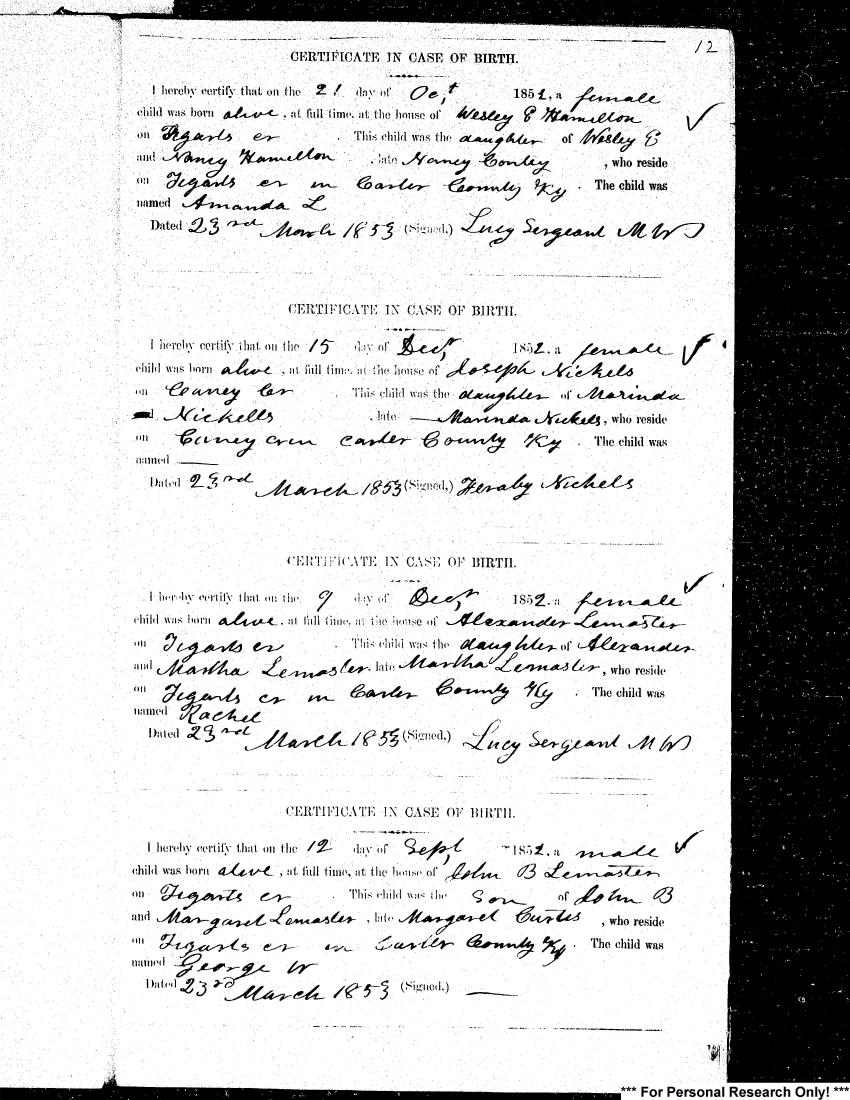 12
CERTIFICATE IN CASE OF BIRTH.
I hereby certify that on the 21 day of Oct, 1852, a female
child was born alive, at full time, at the house of Wesley E Hamilton
on Tigarts cr. This child was the daughter of Wesley E
and Nancy Hamilton, late Nancy Conley, who reside
on Tigarts cr in Carter County Ky. The child was
named Amanda L
Dated 23rd March 1853 (Signed,) Lucy Sergeant M W
CERTIFICATE IN CASE OF BIRTH.
I hereby certify that on the 15 day of Dect, 1852, a female
child was born alive, at full time, at the house of Joseph Nickels
on Caney Cr. This child was the daughter of Marinda
Nickells, late — Marinda Nickels, who reside
on Caney cr in Carter County Ky. The child was
named —
Dated 23rd March 1853 (Signed,) Feraby Nickels
CERTIFICATE IN CASE OF BIRTH.
I hereby certify that on the 9 day of Dect, 1852, a female
child was born alive, at full time, at the house of Alexander Lemaster
on Tigarts cr. This child was the daughter of Alexander
and Martha Lemaster, late Martha Lemaster, who reside
on Tigarts cr in Carter County Ky. The child was
named Rachel
Dated 23rd March 1853 (Signed,) Lucy Sergeant M W
CERTIFICATE IN CASE OF BIRTH.
I hereby certify that on the 12 day of Sept, 1852, a male
child was born alive, at full time, at the house of John B Lemaster
on Tigarts cr. This child was the Son of John B
and Margaret Lemaster, late Margaret Curtis, who reside
on Tigarts cr in Carter County Ky. The child was
named George W
Dated 23rd March 1853 (Signed,) —
*** For Personal Research Only! ***